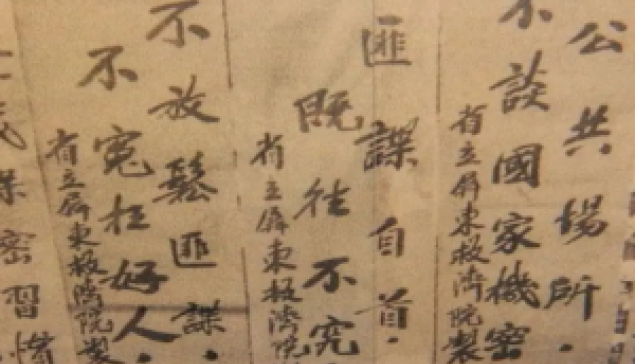 公共場所．
不談國家機密
省立屏東救濟院製
匪諜自首．
既往不究
省立屏東救濟院
不放鬆匪諜．
不冤枉好人．
省立屏東救濟院製
成保密習慣